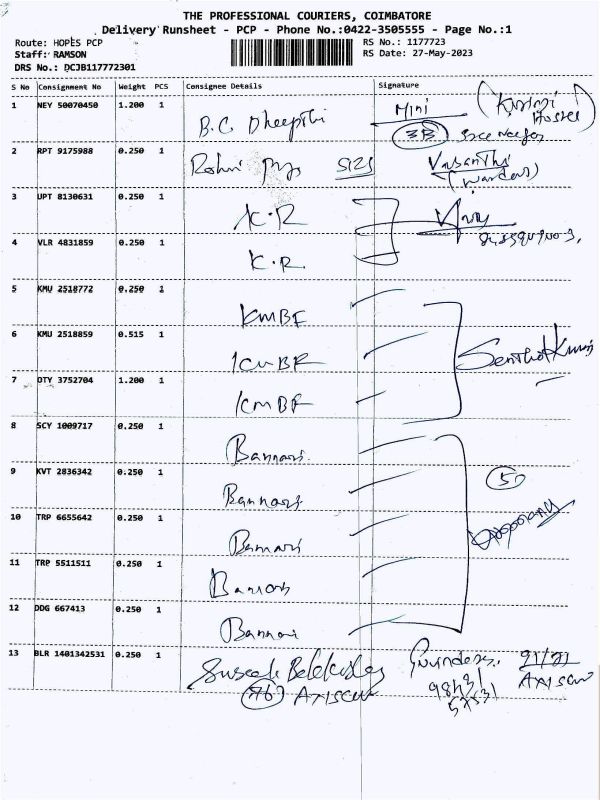 THE PROFESSIONAL COURIERS, COIMBATORE
Delivery Runsheet - PCP - Phone No.:0422-3505555 - Page No.:1
Route: HOPES PCP
Staff: RAMSON
DRS No.: DCJB117772301
RS No.: 1177723
RS Date: 27-May-2023
S No Consignment No Weight PCS Consignee Details Signature
1 NEY 50070450 1.200 1 B.C. Dheepthi Mini
3B
2 RPT 9175988 0.250 1 Vasanthi
(Warden)
3 UPT 8130631 0.250 1 K.R
4 VLR 4831859 0.250 1 K.R.
5 KMU 2518772 0.250 1 KMBF
6 KMU 2518859 0.515 1 KMBF
7 DTY 3752704 1.200 1 KMBF
8 SCY 1009717 0.250 1 Bannari.
9 KVT 2836342 0.250 1 Bannari
10 TRP 6655642 0.250 1 Bannari
11 TRP 5511511 0.250 1 Bannari
12 DDG 667413 0.250 1 Bannari
13 BLR 1401342531 0.250 1